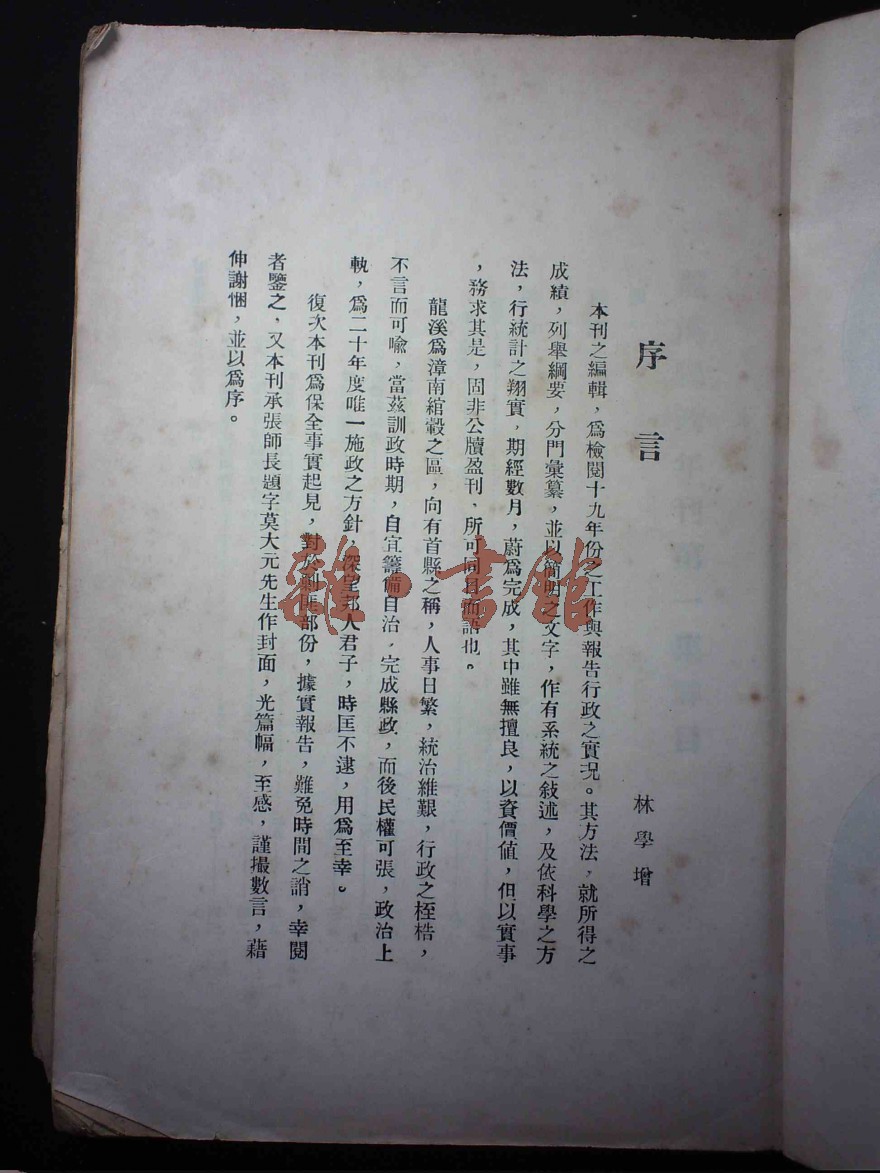 序言
林學增
本刊之編輯，爲檢閱十九年份之工作與報告行政之實况。其方法，就所得之
成績，列舉綱要，分門彙纂，並以簡明之文字，作有系統之敍述，及依科學之方
法，行統計之翔實，期經數月，蔚爲完成，其中雖無擅良，以資價値，但以實事
，務求其是，固非公牘盈刊、所可同日而語也。
龍溪爲漳南綰轂之區，向有首縣之稱，人事日繁，統治維艱，行政之桎梏，
不言而可喩，當茲訓政時期，自宜籌備自治，完成縣政，而後民權可張，政治上
軌，爲二十年度唯一施政之方針，深望邦人君子，時匡不逮，用爲至幸。
復次本刊爲保全事實起見，對於剿匪部份，據實報告，難免時間之誚，幸閱
者鑒之，又本刊承張師長題字莫大元先生作封面，光篇幅，至感，謹撮數言，藉
伸謝悃，並以爲序。
雜·書館